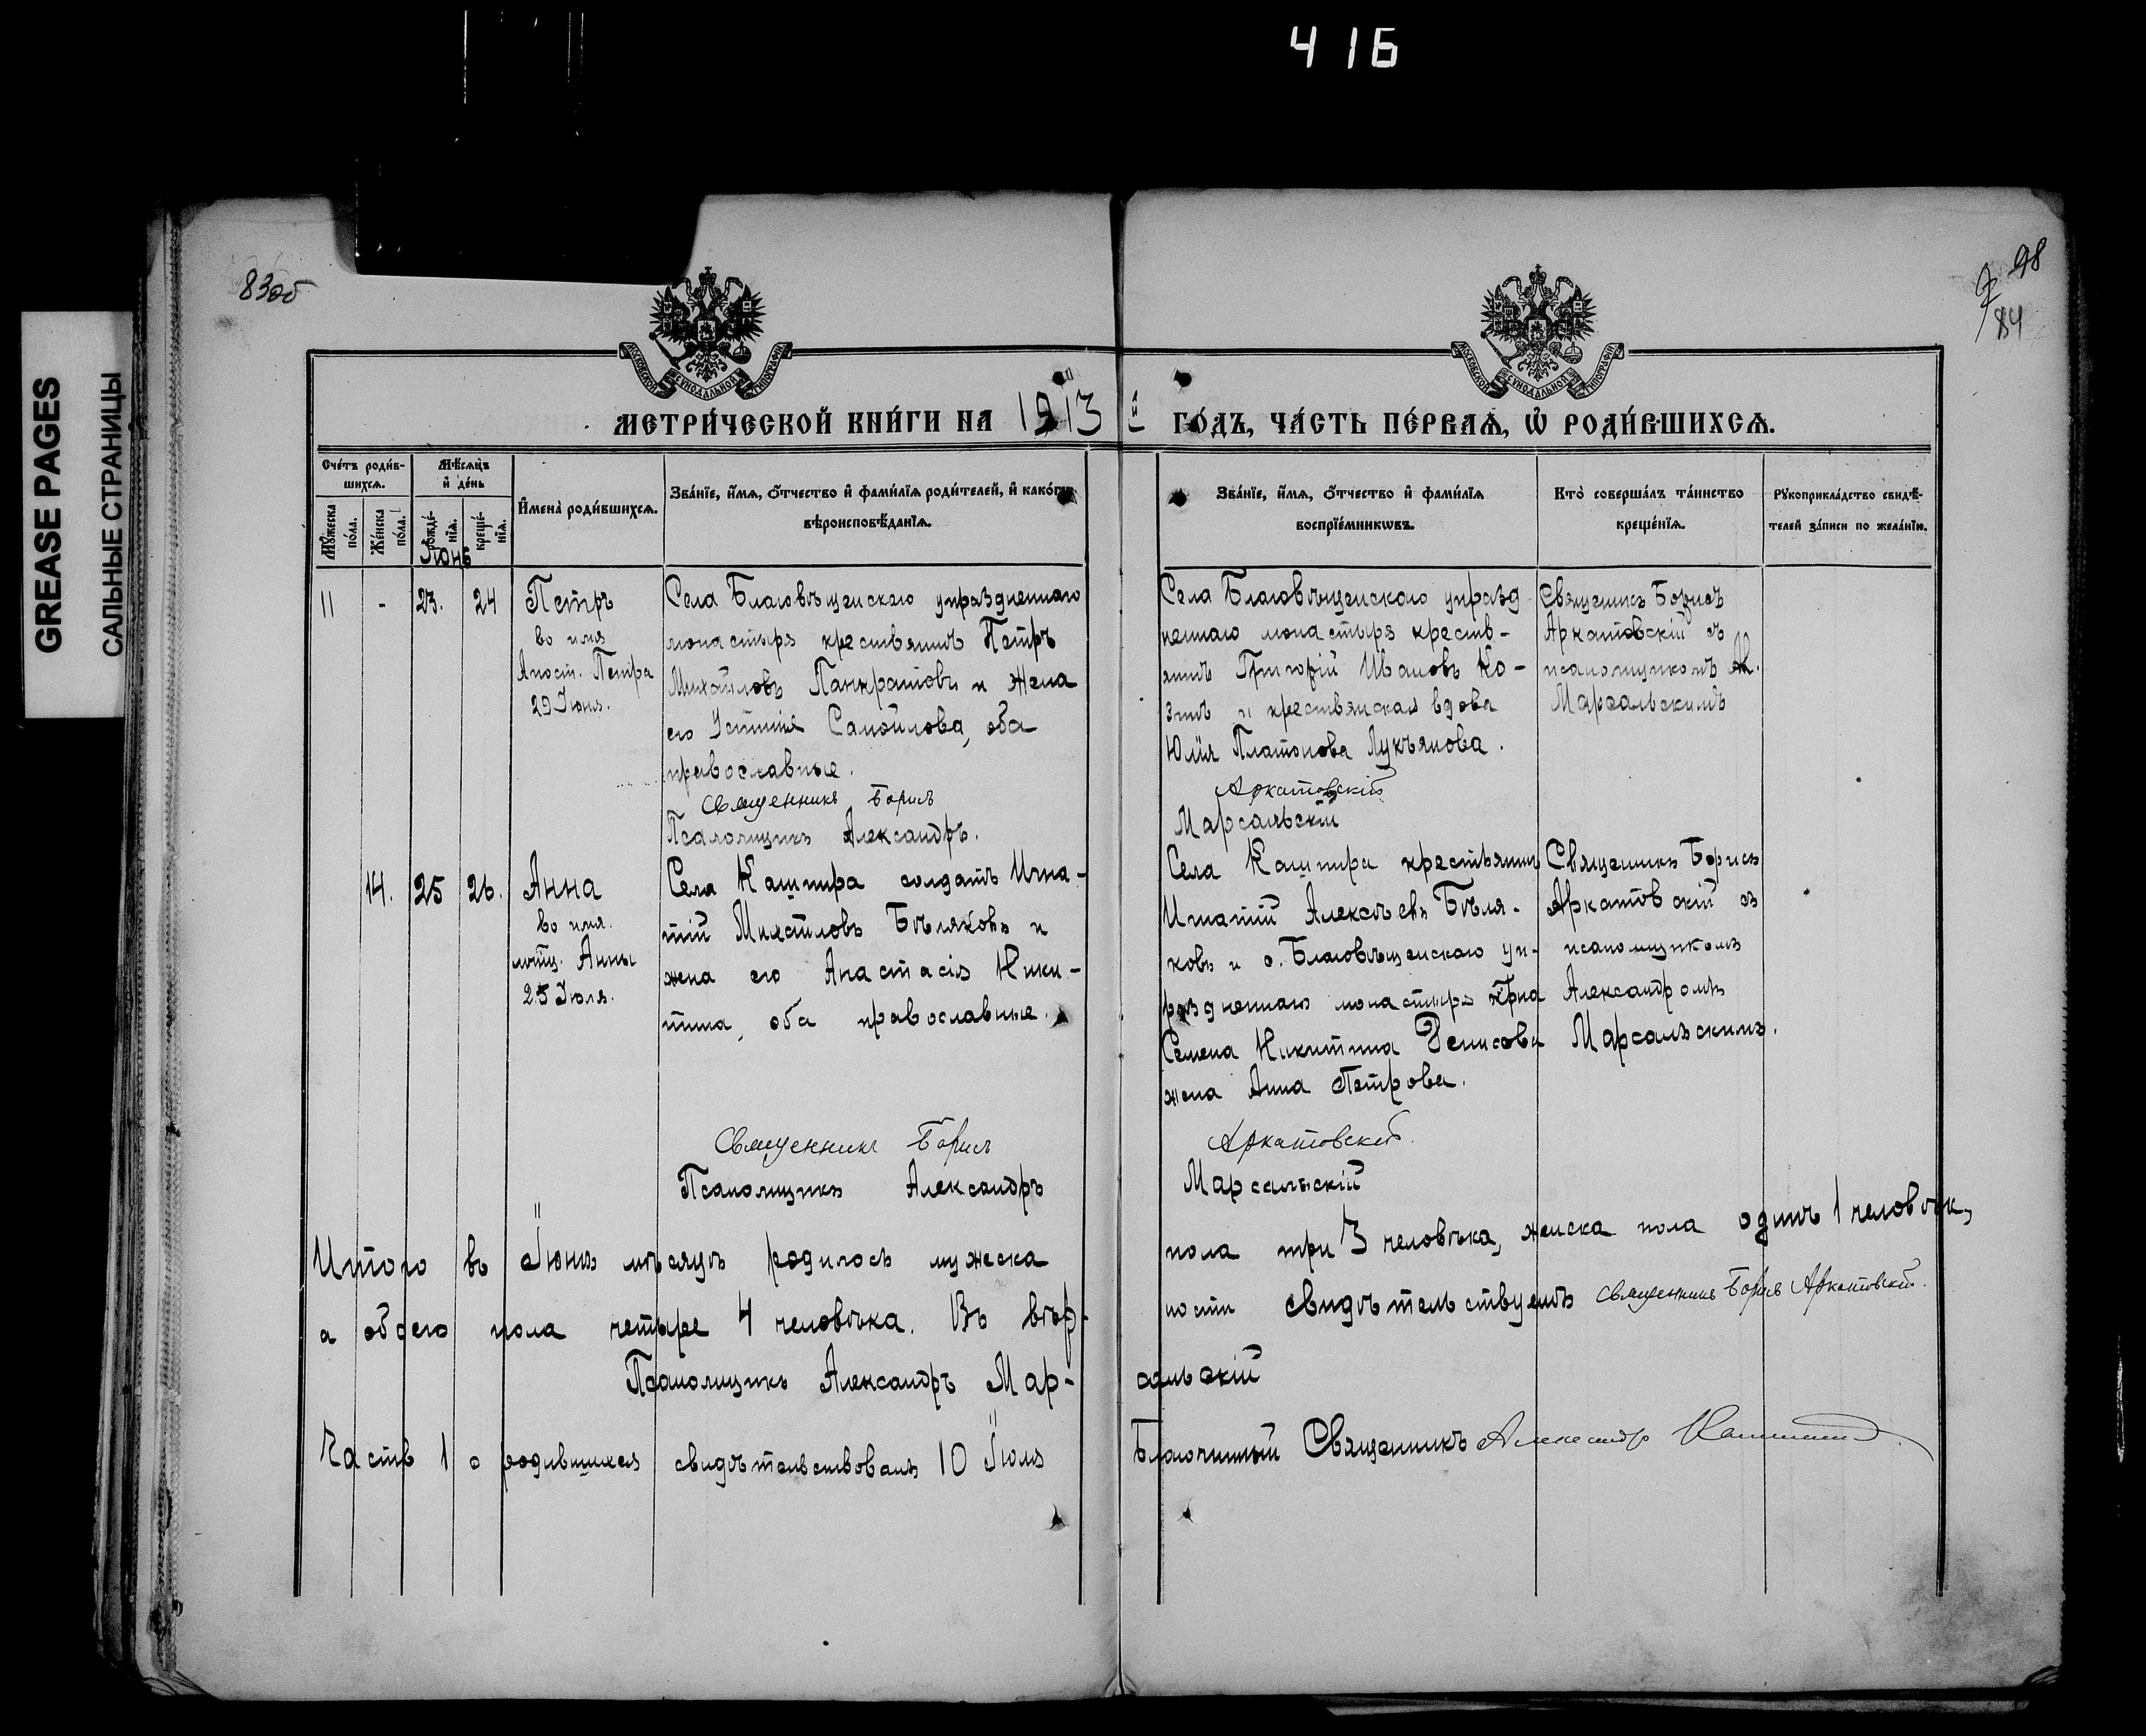 416
GREASE PAGES
САЛЬНЫЕ СТРАНИЦЫ
83об
98
84
МОСКОВСКОЙ СѴНОДАЛЬНОЙ ТИПОГРАФІИ
МОСКОВСКОЙ СѴНОДАЛЬНОЙ ТИПОГРАФІИ
МЕТРИ́ЧЕСКОЙ КНИ́ГИ НА 1913 й ГО́ДЪ, ЧА́СТЬ ПЕ́РВАѦ, Ѡ҆ РОДИ́ВШИХСѦ.
Сче́тъ роди́в-
шихсѧ.
Мꙋ́жеска по́ла.
Же́нска по́ла.
Мѣ́сѧцъ
и҆ де́нь
рожде́-
нїѧ.
креще́-
нїѧ.
И҆мена̀ роди́вшихсѧ.
Зва́нїе, и҆́мѧ, ѻ҆́тчество и҆ фами́лїѧ роди́телей, и҆ како́гѡ
вѣроисповѣ́данїѧ.
Зва́нїе, и҆́мѧ, ѻ҆́тчество и҆ фами́лїѧ
воспрїе́мникѡвъ.
Кто̀ соверша́лъ та́инство
креще́нїѧ.
Рꙋкоприкла́дство свидѣ́-
телей за́писи по жела́нїю.
Іюнь
11 - 23. 24
Петръ
во имя
Апост. Петра
29 Іюня.
Села Благовѣщенскаго упраздненнаго
монастыря крестьянинъ Петръ
Михайловъ Панкратовъ и жена
его Устинія Самойлова, оба
православные.
Священникъ Борисъ
Псаломщикъ Александръ.
Села Благовѣщенскаго упразд
неннаго монастыря кресть-
янинъ Григорій Ивановъ Ко-
зинъ и крестьянская вдова
Юлія Платонова Лукьянова.
Аркатовскій
Марсальскій
Священникъ Борисъ
Аркатовскій съ
псаломщикомъ Ал.
Марсальскимъ
14. 25 26.
Анна
во имя.
мтц. Анны
25 Іюля.
Села Кашпира солдатъ Игна-
тій Михайловъ Бѣляковъ и
жена его Анастасія Ники-
тина, оба православные.
Села Кашпира крестьянинъ
Игнатій Алексѣевъ Бѣля-
ковъ и с. Благовѣщенскаго уп-
раздненнаго монастыря кр-на
Семена Никитина Денисова
жена Анна Петрова.
Священникъ Борисъ
Аркатовскій съ
псаломщикомъ
Александромъ
Марсальскимъ.
Священникъ Борисъ
Аркатовскій.
Псаломщикъ Александръ
Марсальскій
Итого въ Іюнѣ мѣсяцѣ родилось мужеска
пола три 3 человѣка, женска пола одинъ 1 человѣкъ,
а обоего пола четыре 4 человѣка. Въ вѣр-
ности свидѣтельствуемъ священникъ Борисъ Аркатовскій.
Псаломщикъ Александръ Мар-
сальскій
Часть 1 о родившихся свидѣтельствовалъ 10 Іюля
Благочинный Священникъ Александръ